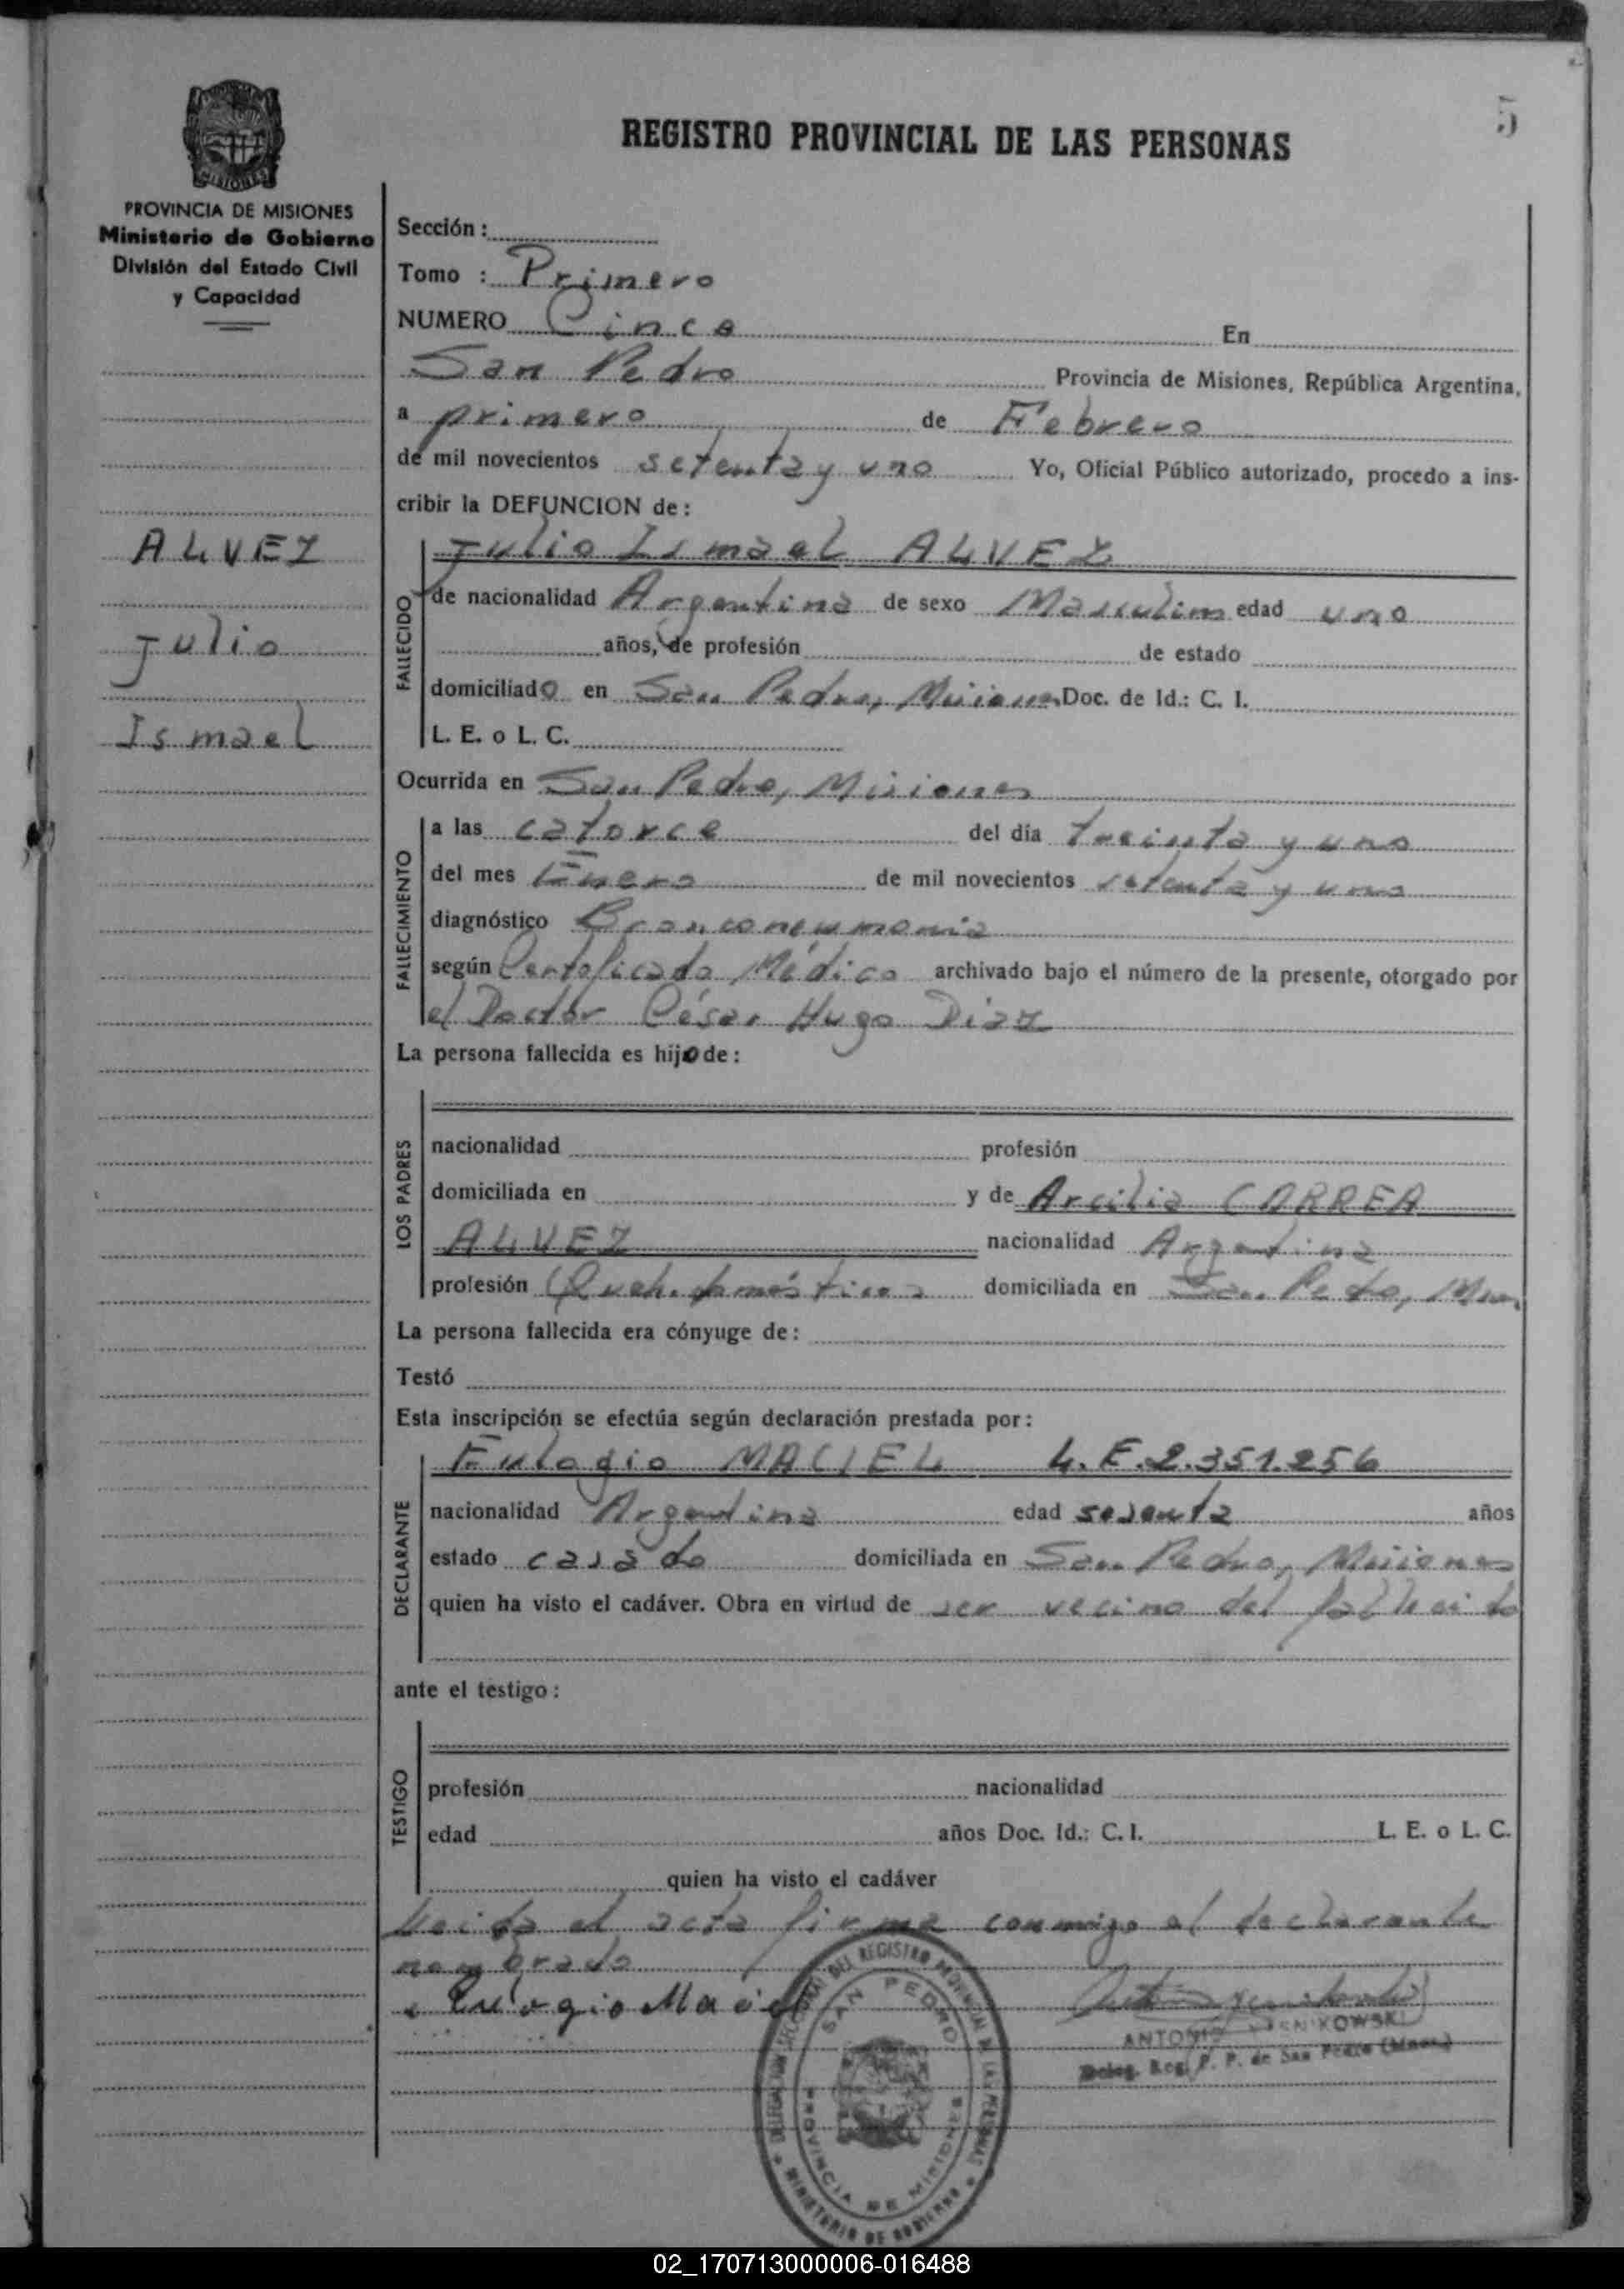 5
REGISTRO PROVINCIAL DE LAS PERSONAS
MISIONES
PROVINCIA DE MISIONES
Ministerio de Gobierno
División del Estado Civil
y Capacidad
ALVEZ
Julio
Ismael
Sección :
Tomo : Primero
NUMERO Cinco En
San Pedro Provincia de Misiones, República Argentina,
a primero de Febrero
de mil novecientos setenta y uno Yo, Oficial Público autorizado, procedo a ins-
cribir la DEFUNCION de :
FALLECIDO
Julio Ismael ALVEZ
de nacionalidad Argentina de sexo Masculino edad uno
años, de profesión de estado
domiciliado en San Pedro, Misiones Doc. de Id.: C. I.
L. E. o L. C.
Ocurrida en San Pedro, Misiones
FALLECIMIENTO
a las catorce del día treinta y uno
del mes Enero de mil novecientos setenta y uno
diagnóstico Bronconeumonia
según Certificado Médico archivado bajo el número de la presente, otorgado por
el Doctor César Hugo Diaz
La persona fallecida es hijo de :
LOS PADRES
nacionalidad profesión
domiciliada en y de Arcilia CARREA
ALVEZ nacionalidad Argentina
profesión Queh. domésticos domiciliada en San Pedro, Mnes
La persona fallecida era cónyuge de :
Testó
Esta inscripción se efectúa según declaración prestada por :
DECLARANTE
Eulogio MACIEL L.E.2.351.256
nacionalidad Argentina edad sesenta años
estado casado domiciliada en San Pedro, Misiones
quien ha visto el cadáver. Obra en virtud de ser vecino del fallecido
ante el testigo :
TESTIGO
profesión nacionalidad
edad años Doc. Id.: C. I. L. E. o L. C.
quien ha visto el cadáver
Leida el acta firma conmigo el declarante
nombrado
Eulogio Maciel
DEL REGISTRO PROVINCIAL DE LAS PERSONAS
SAN PEDRO
PROVINCIA DE MISIONES
MINISTERIO DE GOBIERNO
ANTONIO
Deleg. Reg. P. P. de San Pedro (Mnes)
02_170713000006-016488